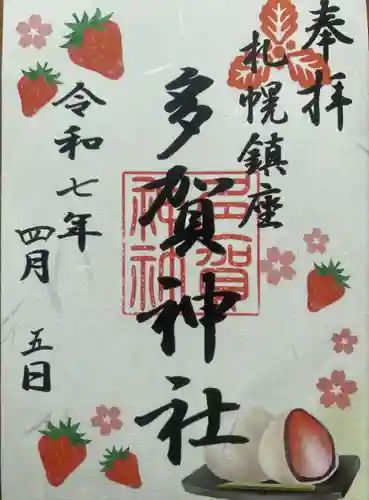 奉拝
札幌鎮座
多賀神社
令和七年
四月
五日